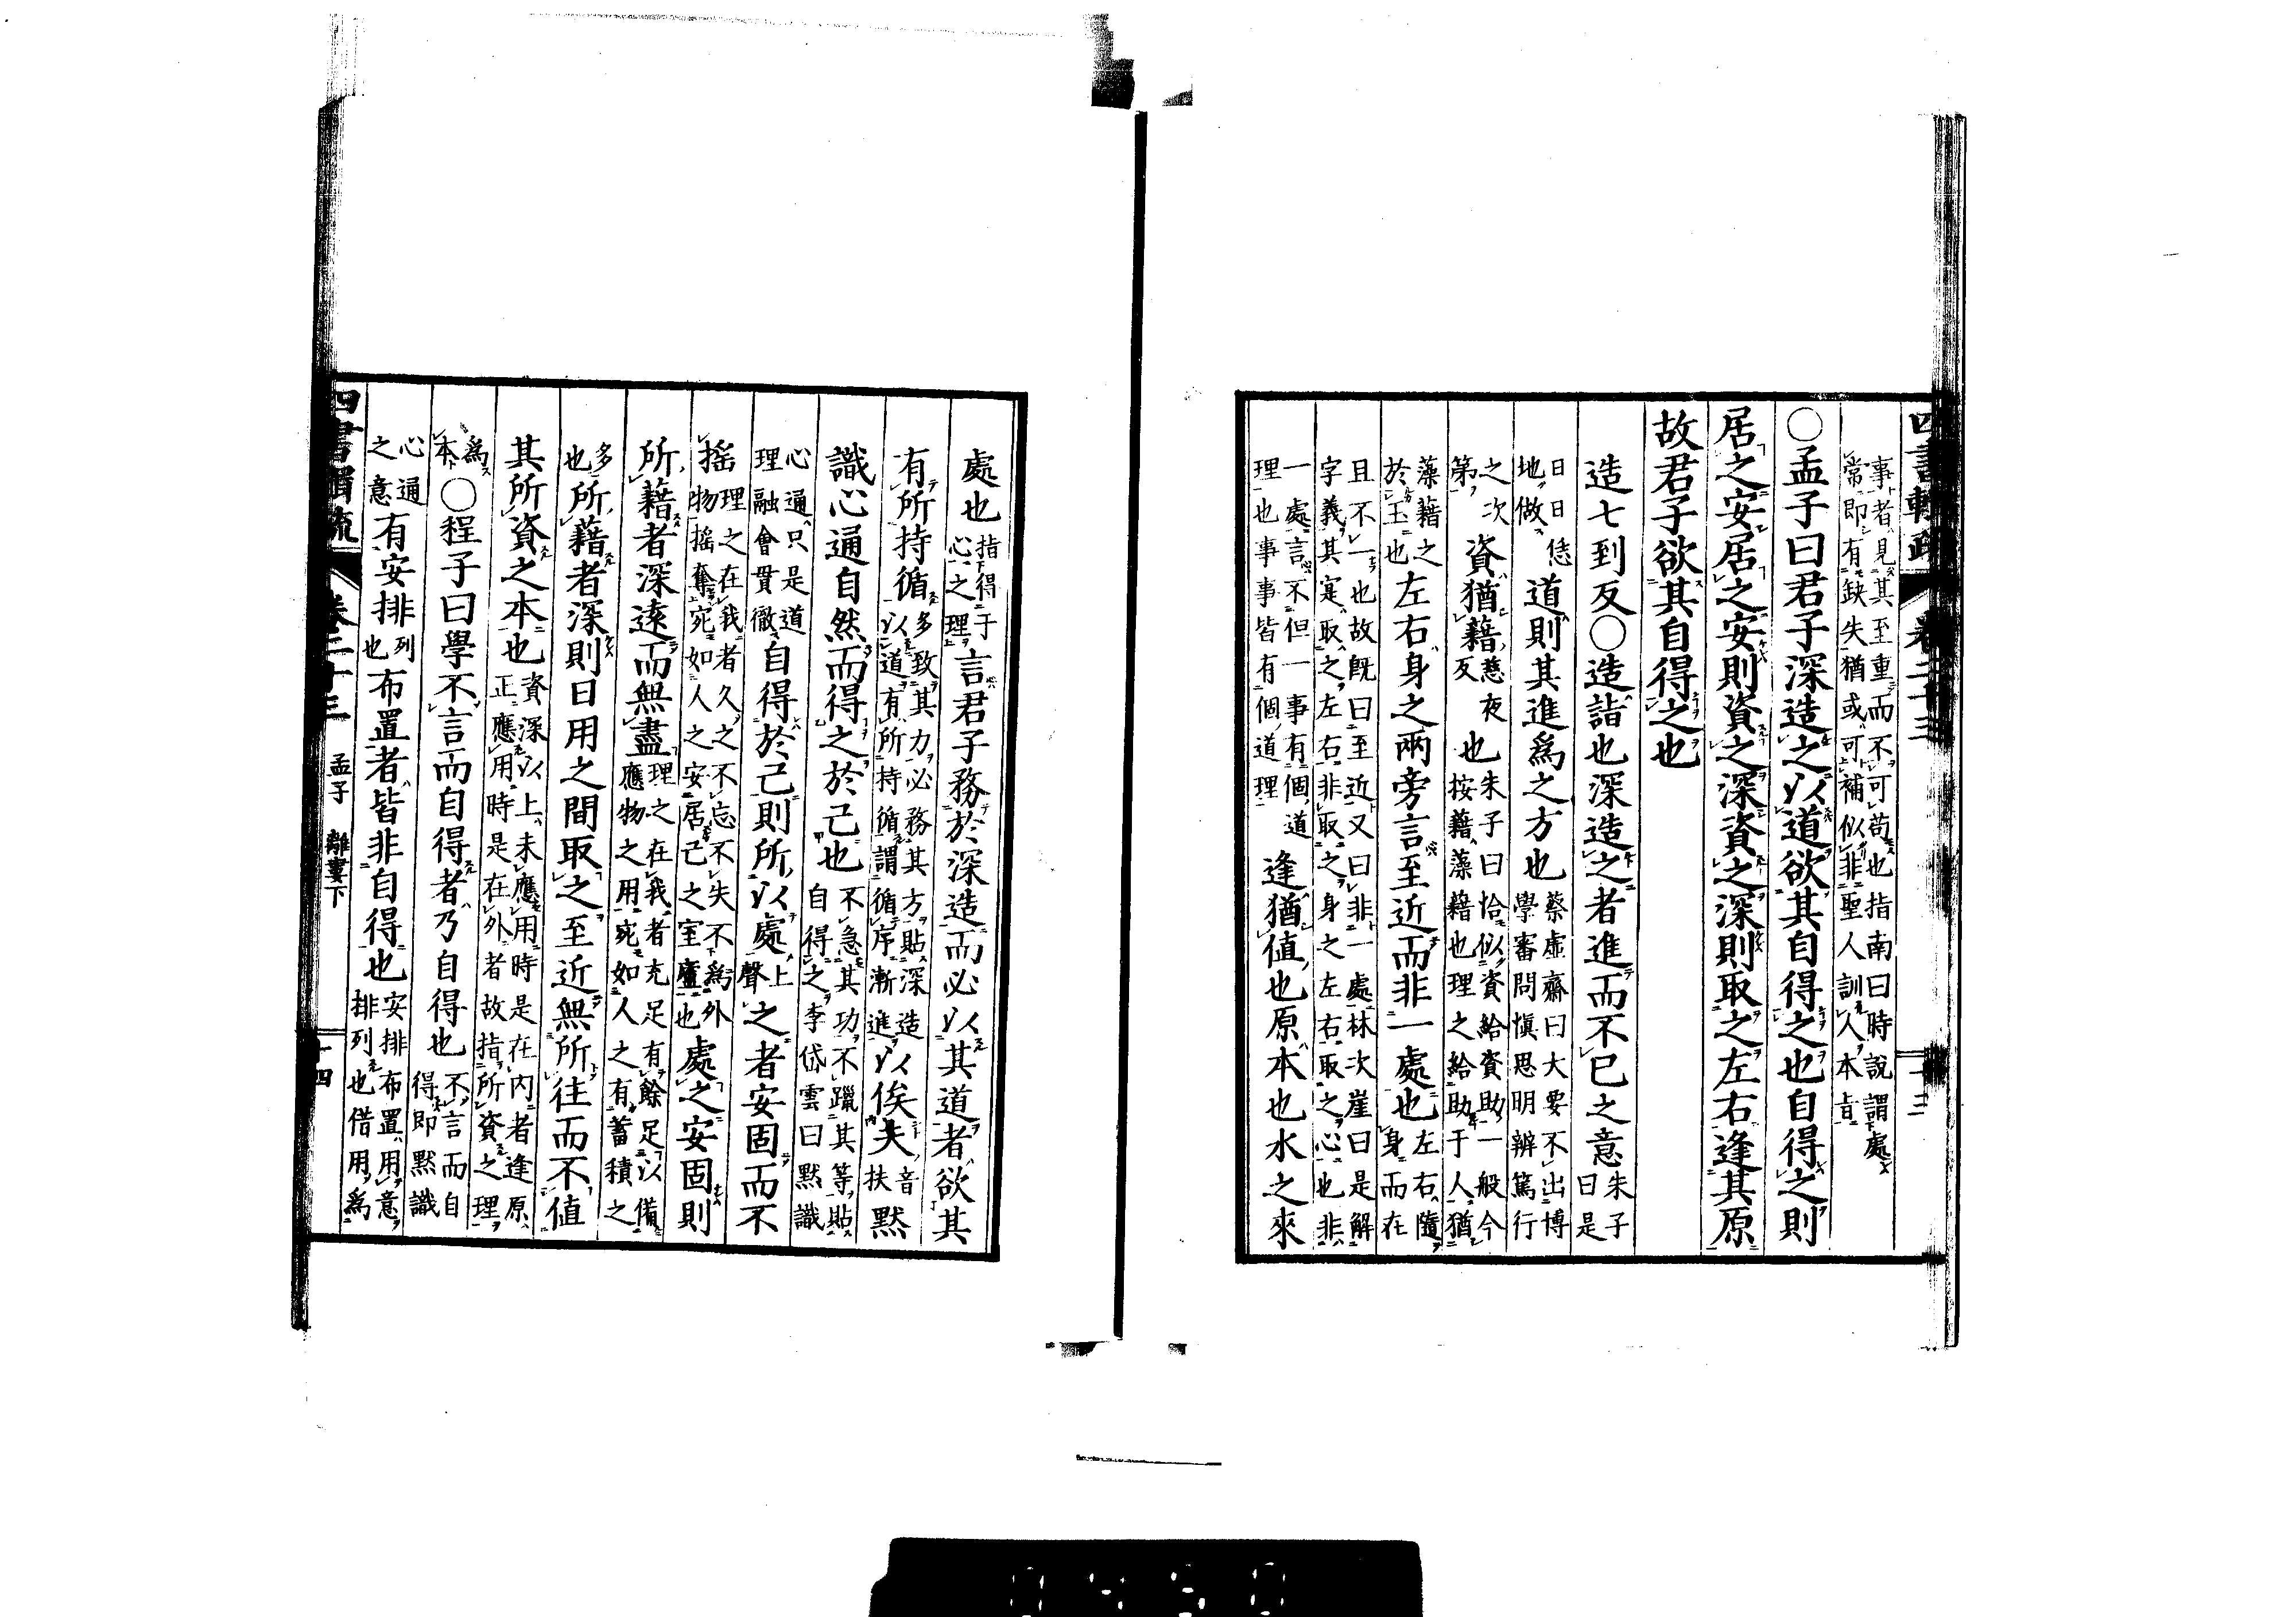 四書輯疏 卷二十三 十三
事者見其至重而不可苟也指南曰時說謂處
常即有缺失猶或可補似非聖人訓人本旨
○孟子曰君子深造之以道欲其自得之也自得之則
居之安居之安則資之深資之深則取之左右逢其原
故君子欲其自得之也
造七到反○造詣也深造之者進而不已之意朱子曰是
日日恁地做道則其進爲之方也蔡虛齋曰大要不出博學審問愼思明辨篤行
之次第資猶藉慈夜反也朱子曰恰似資給資助一般今按藉藻藉也理之給助于人猶
藻藉之於玉也左右身之兩旁言至近而非一處也左右隨身而在
且不一也故既曰至近又曰非一處林次崖曰是解
字義其寔取之左右非取之身之左右取之心也非
一處言不但一事有個道理也事事皆有個道理逢猶值也原本也水之來
處也指得于心之理言君子務於深造而必以其道者欲其
有所持循多致其力必務其方貼深造以道有所持循謂循序漸進以俟夫音扶默
識心通自然而得之於己也不急其功不躐其等貼自得之李岱雲曰默識
心通只是道理融會貫徹自得於己則所以處上聲之者安固而不
搖理之在我者久之不忘不失不爲外物搖奪宛如人之安居己之室廬也處之安固則
所藉者深遠而無盡理之在我者充足有餘足以備應物之用宛如人之有蓄積之
多也所藉者深則日用之間取之至近無所往而不值
其所資之本也資深以上未應用時是在內者逢原正應用時是在外者故指所資之理
爲本○程子曰學不言而自得者乃自得也不言而自得即默識
心通之意有安排列也布置者皆非自得也安排布置用意排列也借用爲
四書輯疏 卷二十三 孟子 離婁下 十四